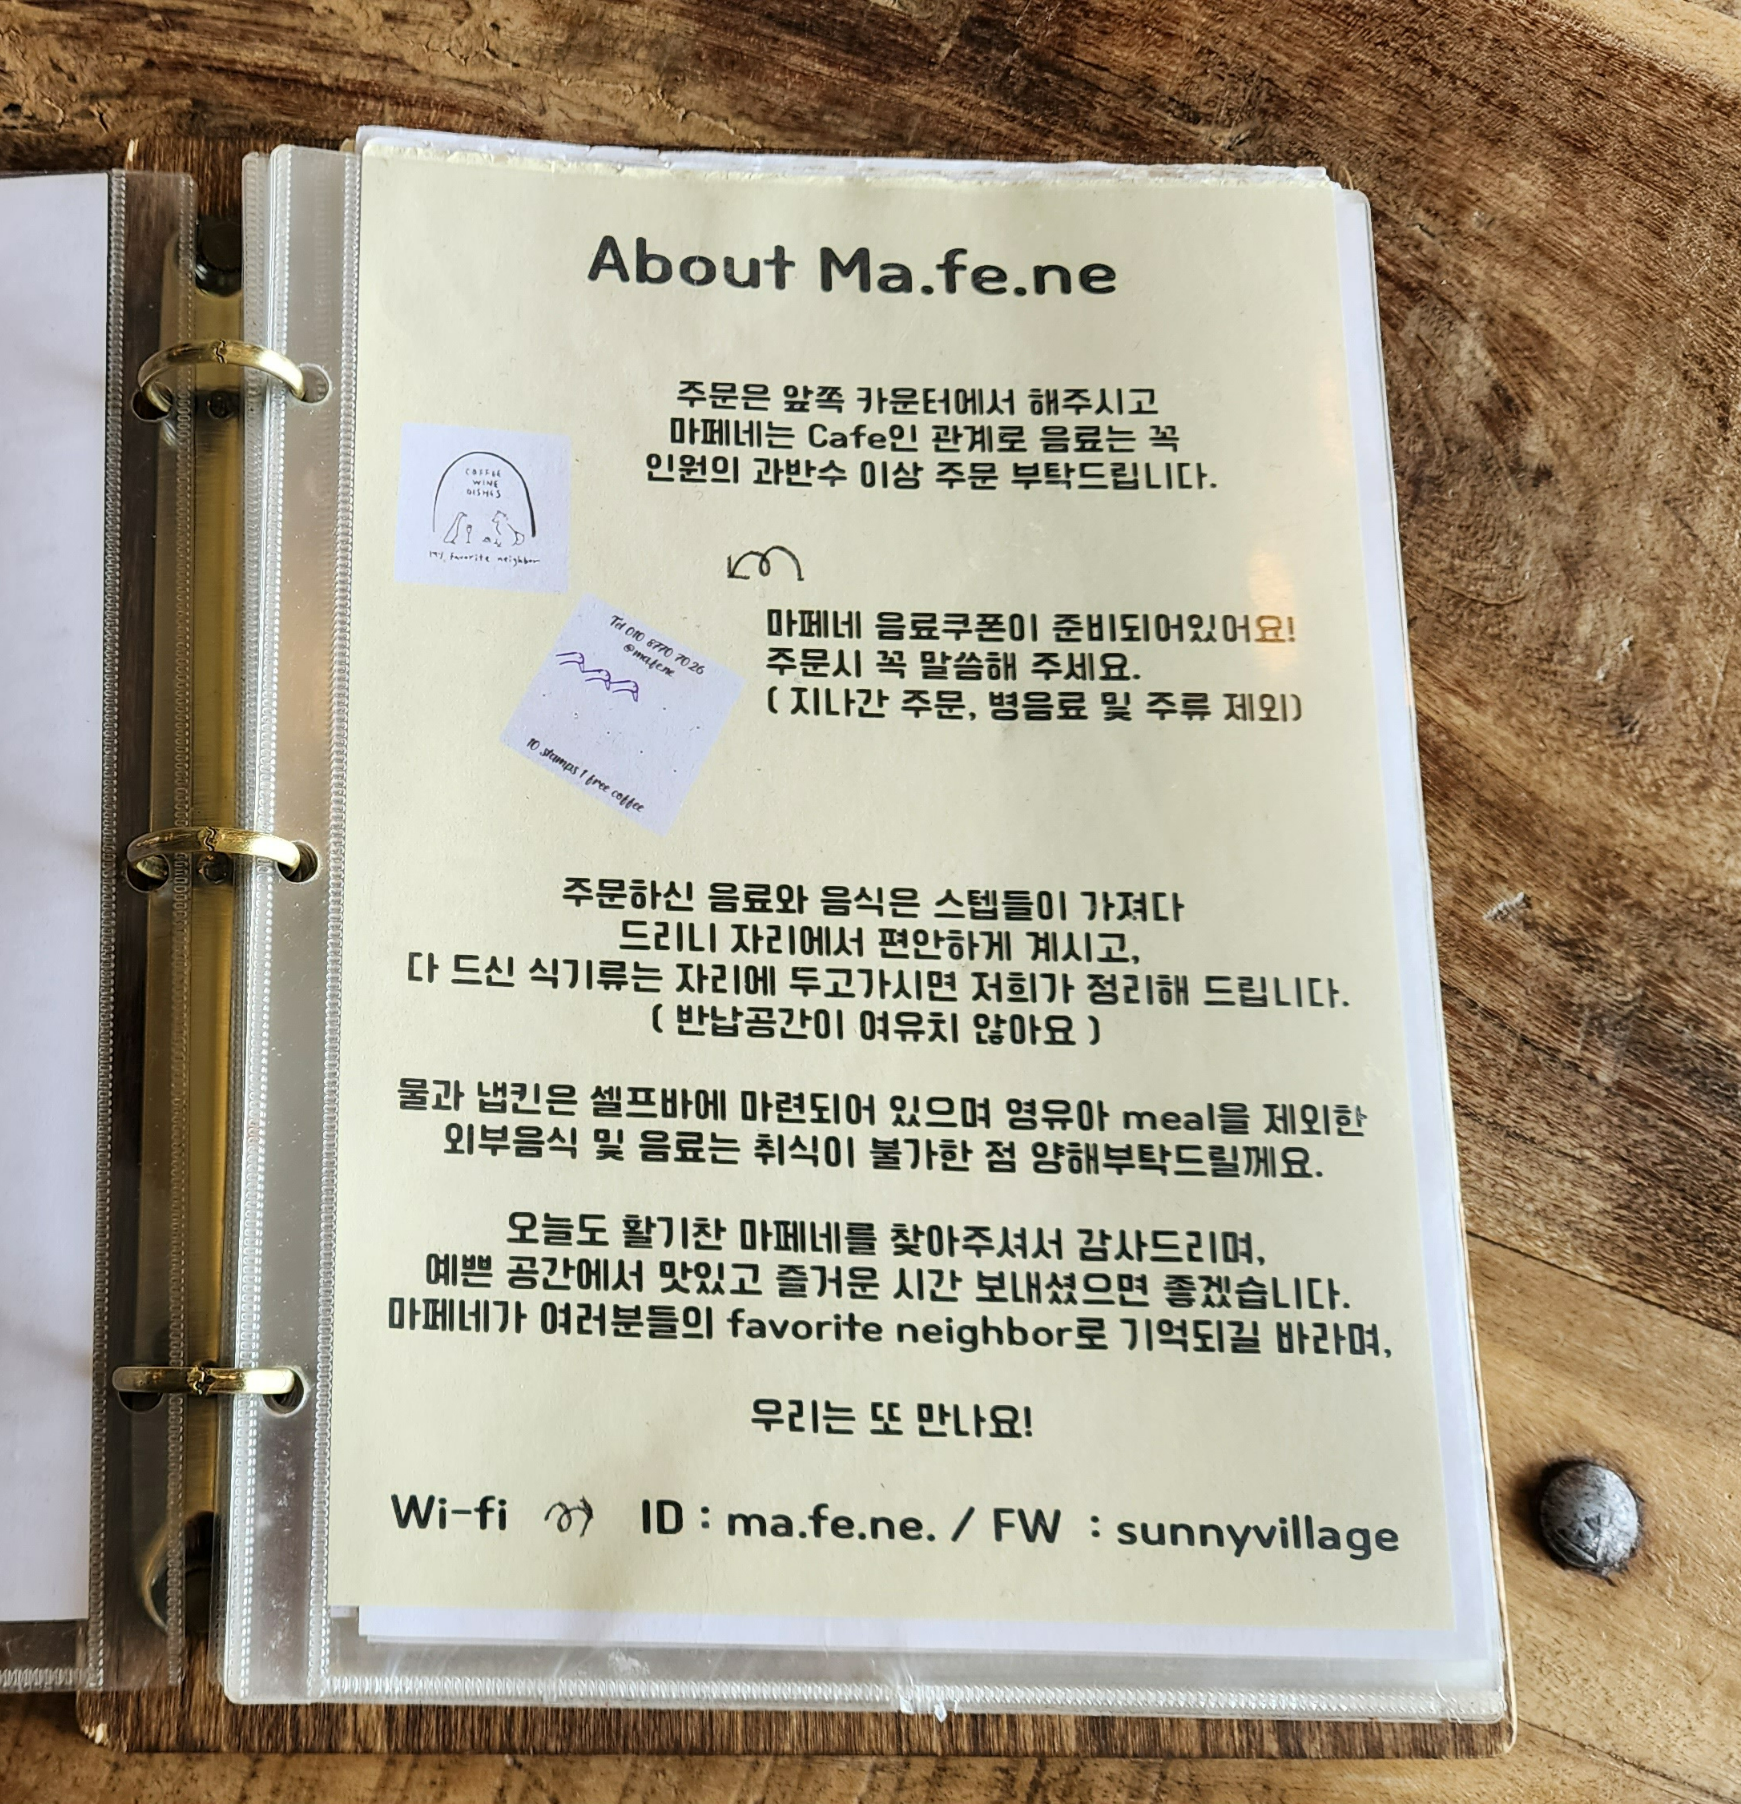 About Ma.fe.ne
주문은 앞쪽 카운터에서 해주시고
마페네는 Cafe인 관계로 음료는 꼭
인원의 과반수 이상 주문 부탁드립니다.
COFFEE
WINE
DISHES
my favorite neighbor
마페네 음료쿠폰이 준비되어있어요!
주문시 꼭 말씀해 주세요.
( 지나간 주문, 병음료 및 주류 제외)
Tel 010 8770 7026
@ma.fe.ne
10 stamps 1 free coffee
주문하신 음료와 음식은 스텝들이 가져다
드리니 자리에서 편안하게 계시고,
다 드신 식기류는 자리에 두고가시면 저희가 정리해 드립니다.
( 반납공간이 여유치 않아요 )
물과 냅킨은 셀프바에 마련되어 있으며 영유아 meal을 제외한
외부음식 및 음료는 취식이 불가한 점 양해부탁드릴께요.
오늘도 활기찬 마페네를 찾아주셔서 감사드리며,
예쁜 공간에서 맛있고 즐거운 시간 보내셨으면 좋겠습니다.
마페네가 여러분들의 favorite neighbor로 기억되길 바라며,
우리는 또 만나요!
Wi-fi ID : ma.fe.ne. / FW : sunnyvillage